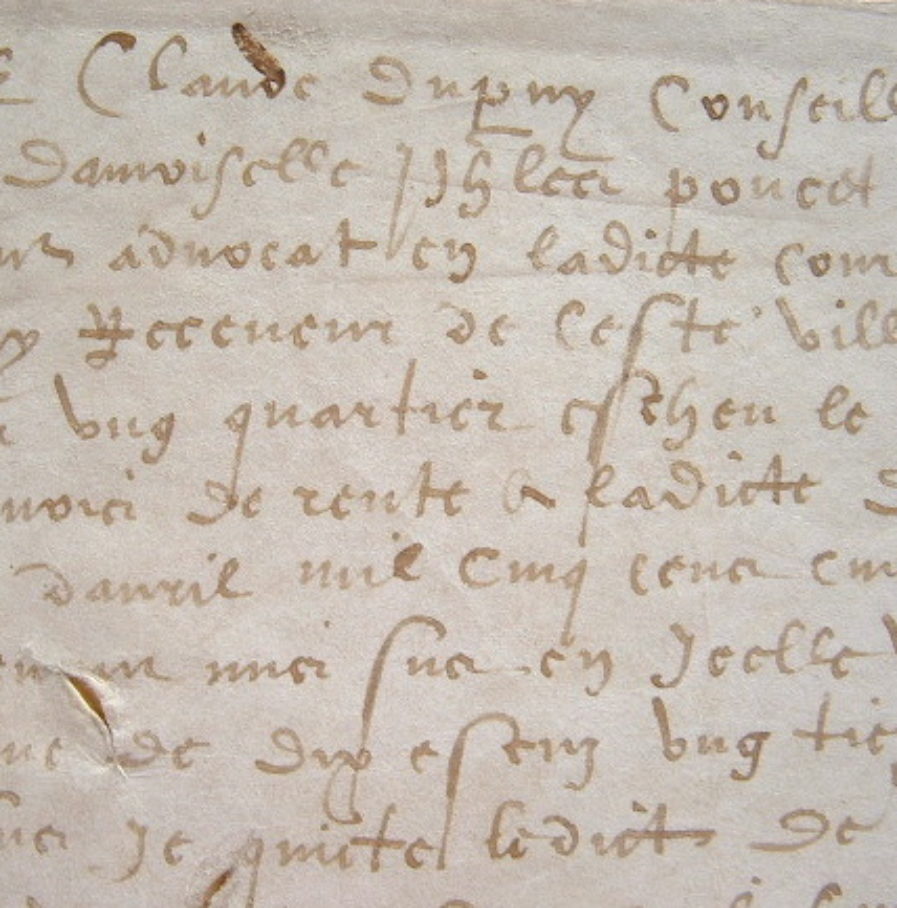 Claude Dupuy Conseill
Damoiselle poucet
advocat en ladicte cour
Receveur de ceste vill
ung quartier escheu le
de rente a ladicte d
davril mil cinq cens cin
en Icelle
de dix escuz ung tie
Je quicte ledict de